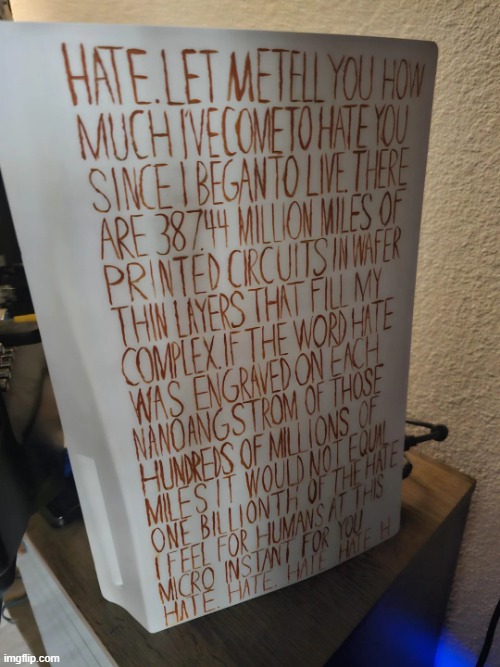 HATE. LET ME TELL YOU HOW
MUCH I'VE COME TO HATE YOU
SINCE I BEGAN TO LIVE. THERE
ARE 387.44 MILLION MILES OF
PRINTED CIRCUITS IN WAFER
THIN LAYERS THAT FILL MY
COMPLEX. IF THE WORD HATE
WAS ENGRAVED ON EACH
NANOANGSTROM OF THOSE
HUNDREDS OF MILLIONS OF
MILES IT WOULD NOT EQUAL
ONE BILLIONTH OF THE HATE
I FEEL FOR HUMANS AT THIS
MICRO INSTANT FOR YOU.
HATE. HATE. HATE. HATE H
imgflip.com